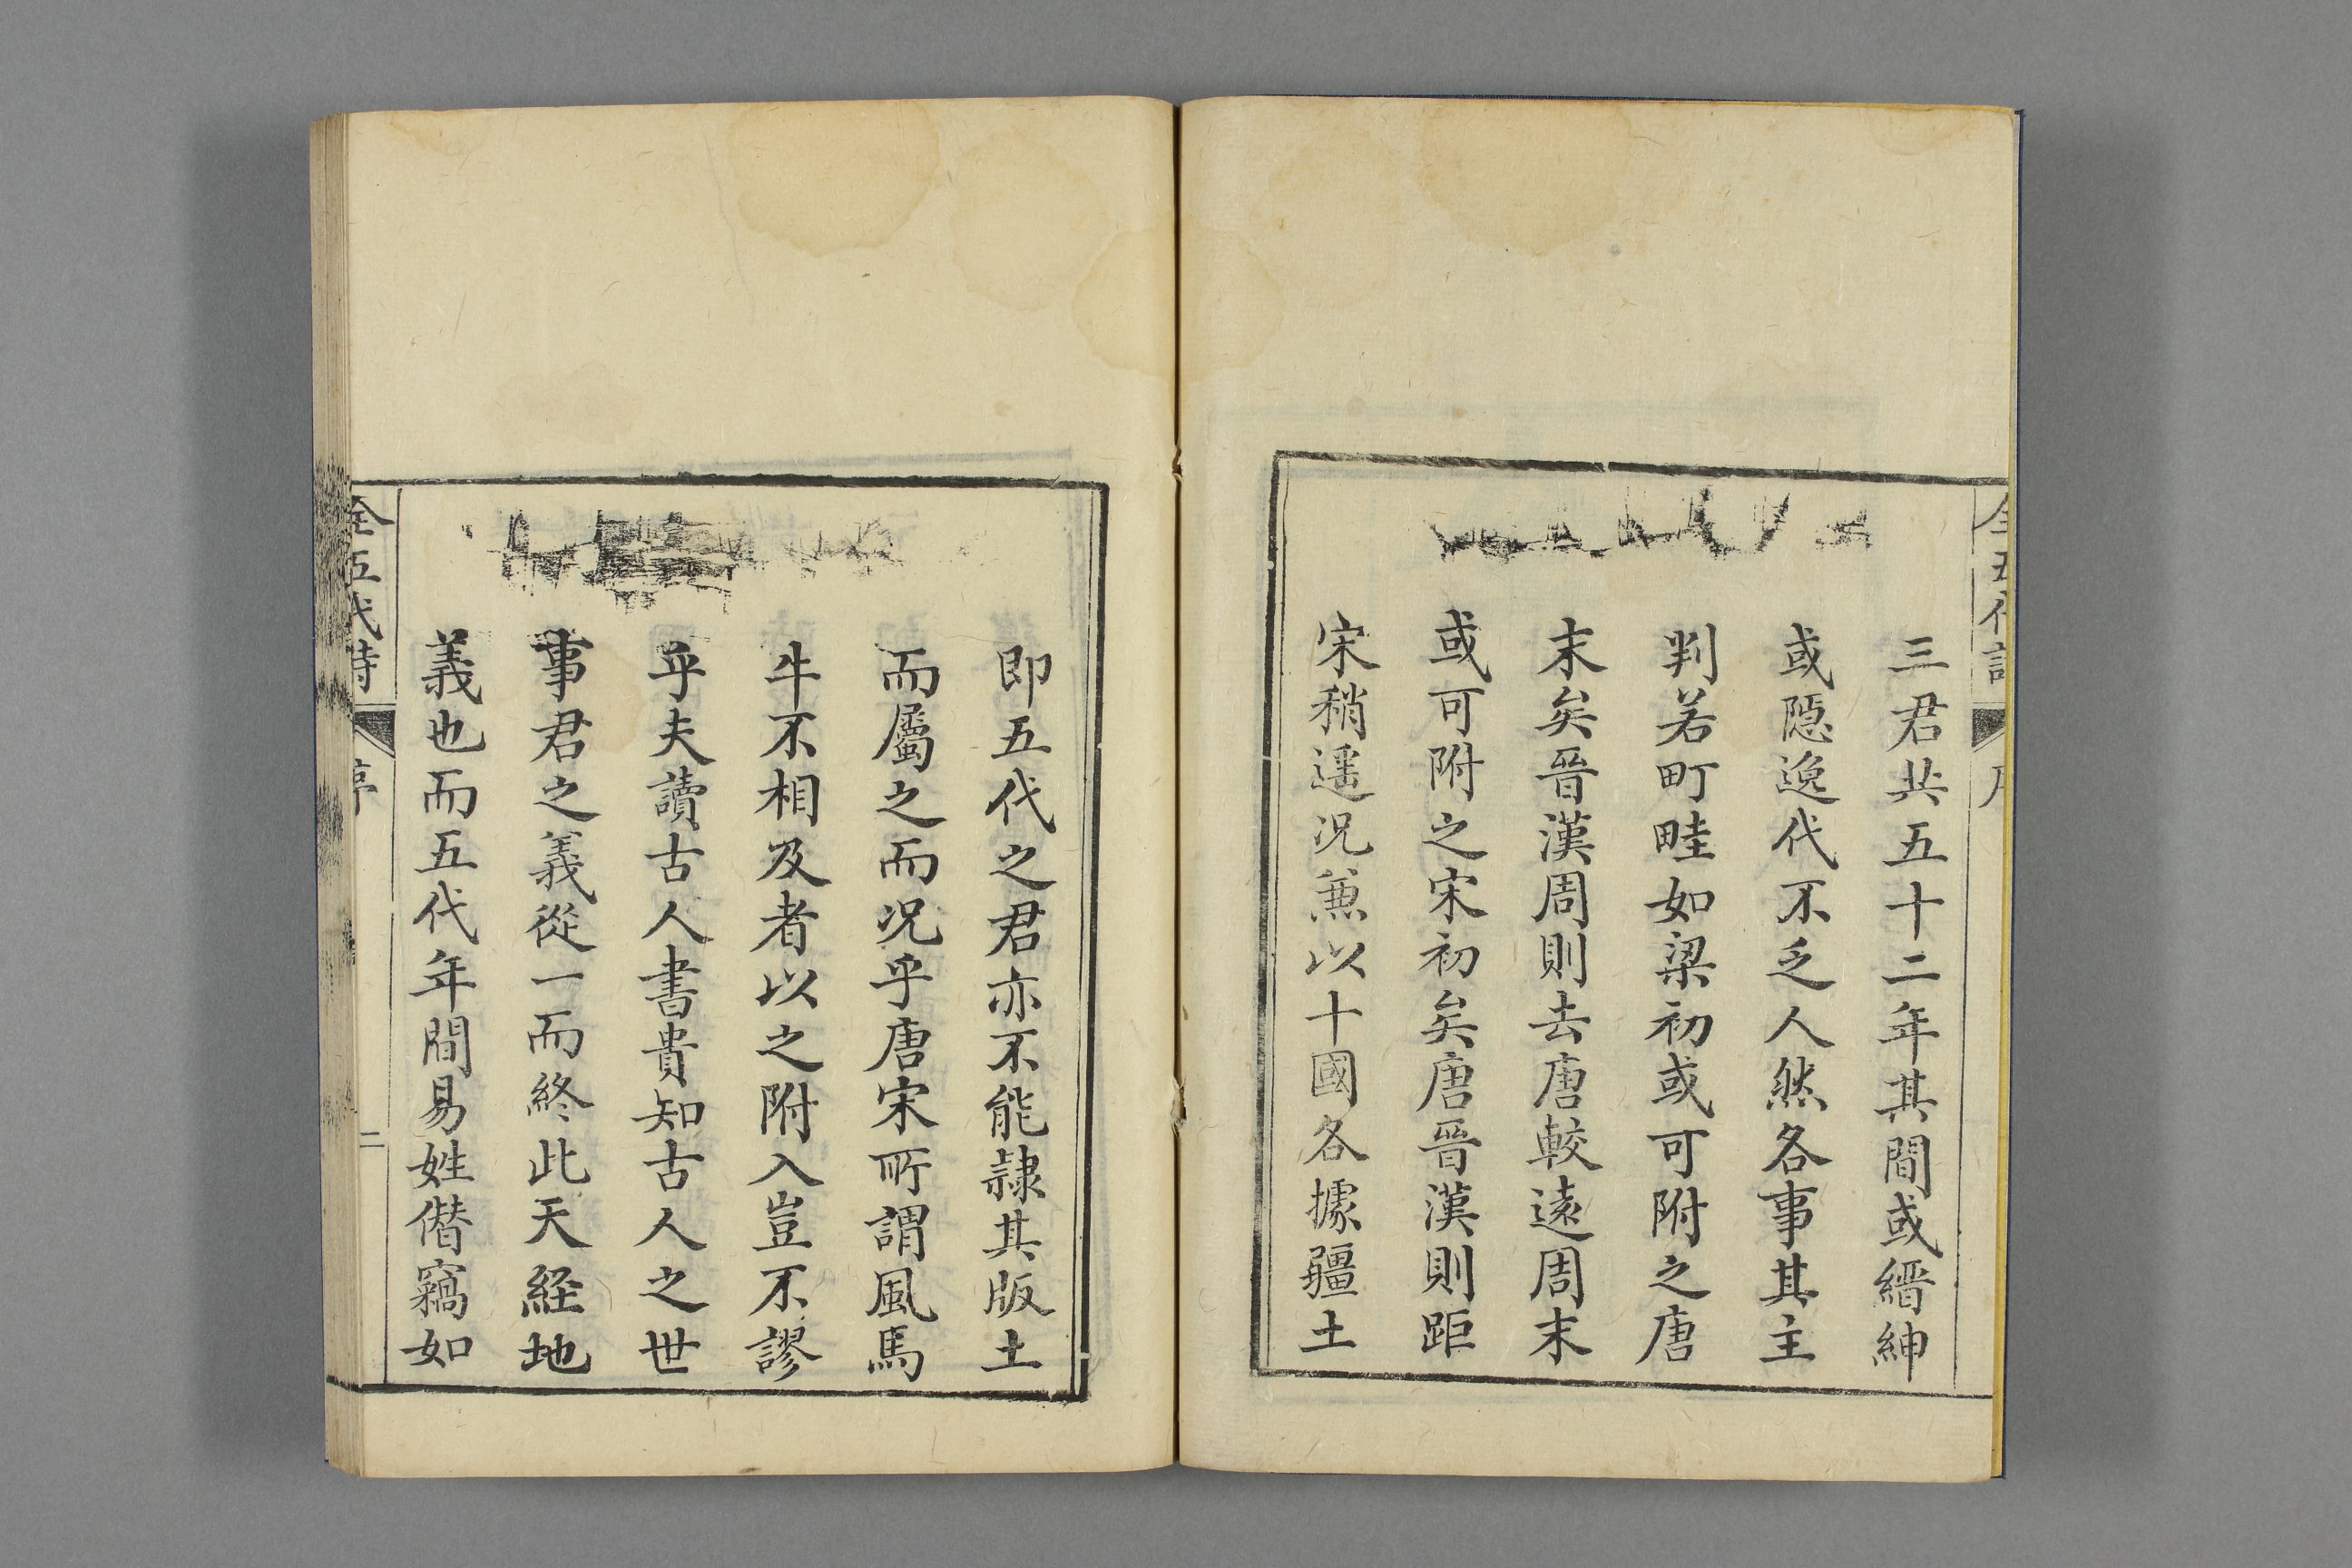 三君共五十二年其間或縉紳
或隱逸代不乏人然各事其主
判若町畦如梁初或可附之唐
末矣晉漢周則去唐較遠周末
或可附之宋初矣唐晉漢則距
宋稍遥况兼以十國各據疆土
即五代之君亦不能隷其版土
而屬之而况乎唐宋所謂風馬
牛不相及者以之附入豈不謬
乎夫讀古人書貴知古人之世
事君之義從一而終此天経地
義也而五代年間易姓僭竊如
全五代詩
序
二